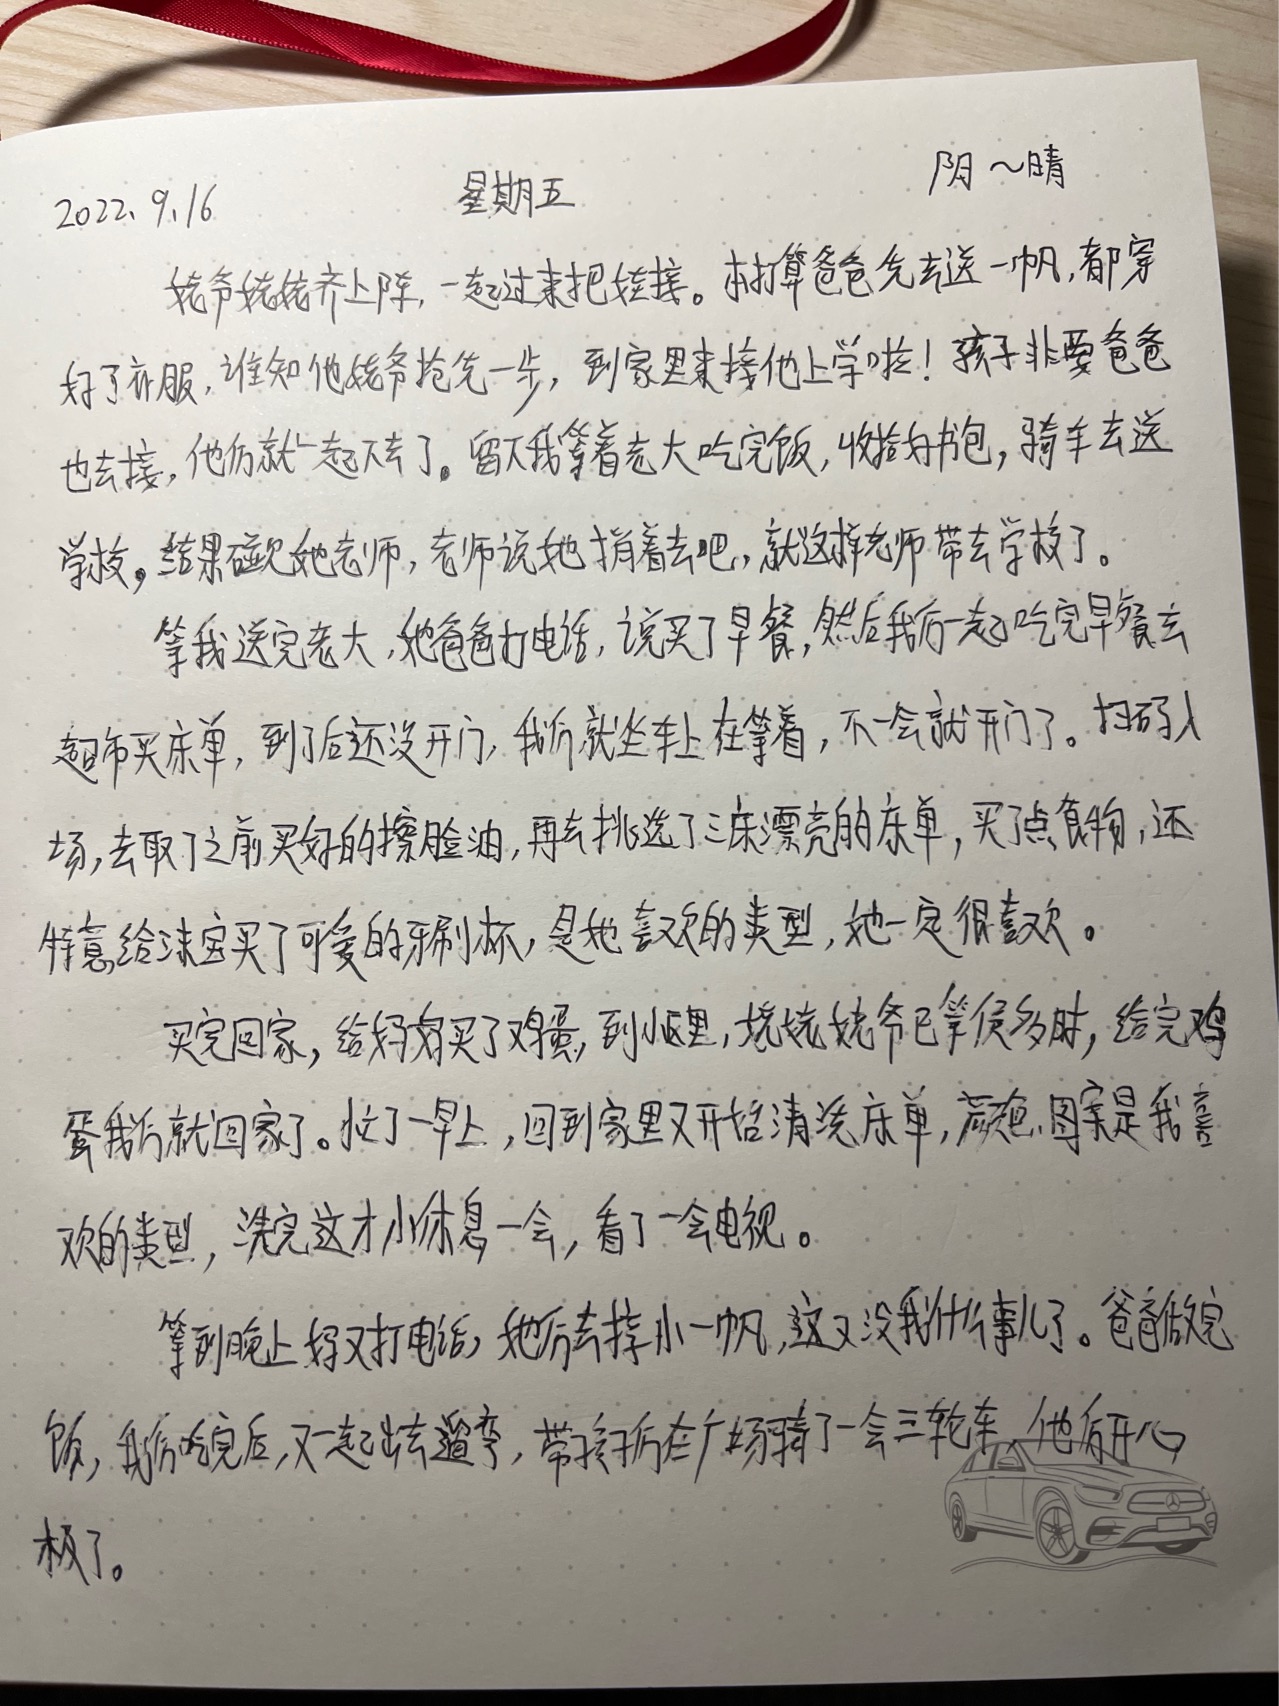 2022.9.16 星期五 阴～晴
姥爷姥姥齐上阵，一起过来把娃接。本打算爸爸先去送一帆，都穿
好了衣服，谁知他姥爷抢先一步，到家里来接他上学啦！孩子非要爸爸
也去接，他们就一起下去了。留下我等着老大吃完饭，收拾好书包，骑车去送
学校。结果碰见她老师，老师说她捎着去吧，就这样老师带去学校了。
等我送完老大，她爸爸打电话，说买了早餐，然后我们一起吃完早餐去
超市买床单，到了后还没开门，我们就坐车上在等着，不一会就开门了。扫码入
场，去取了之前买好的擦脸油，再去挑选了三床漂亮的床单，买了点食物，还
特意给沫宝买了可爱的牙刷杯，是她喜欢的类型，她一定很喜欢。
买完回家，给妈妈买了鸡蛋，到小区里，姥姥姥爷已等候多时，给完鸡
蛋我们就回家了。忙了一早上，回到家里又开始清洗床单，颜色、图案是我喜
欢的类型，洗完这才小休息一会，看了一会电视。
等到晚上妈又打电话，她们去接小一帆，这又没我什么事儿了。爸爸做完
饭，我们吃完后，又一起出去遛弯，带孩子们在广场骑了一会三轮车，他们开心
极了。